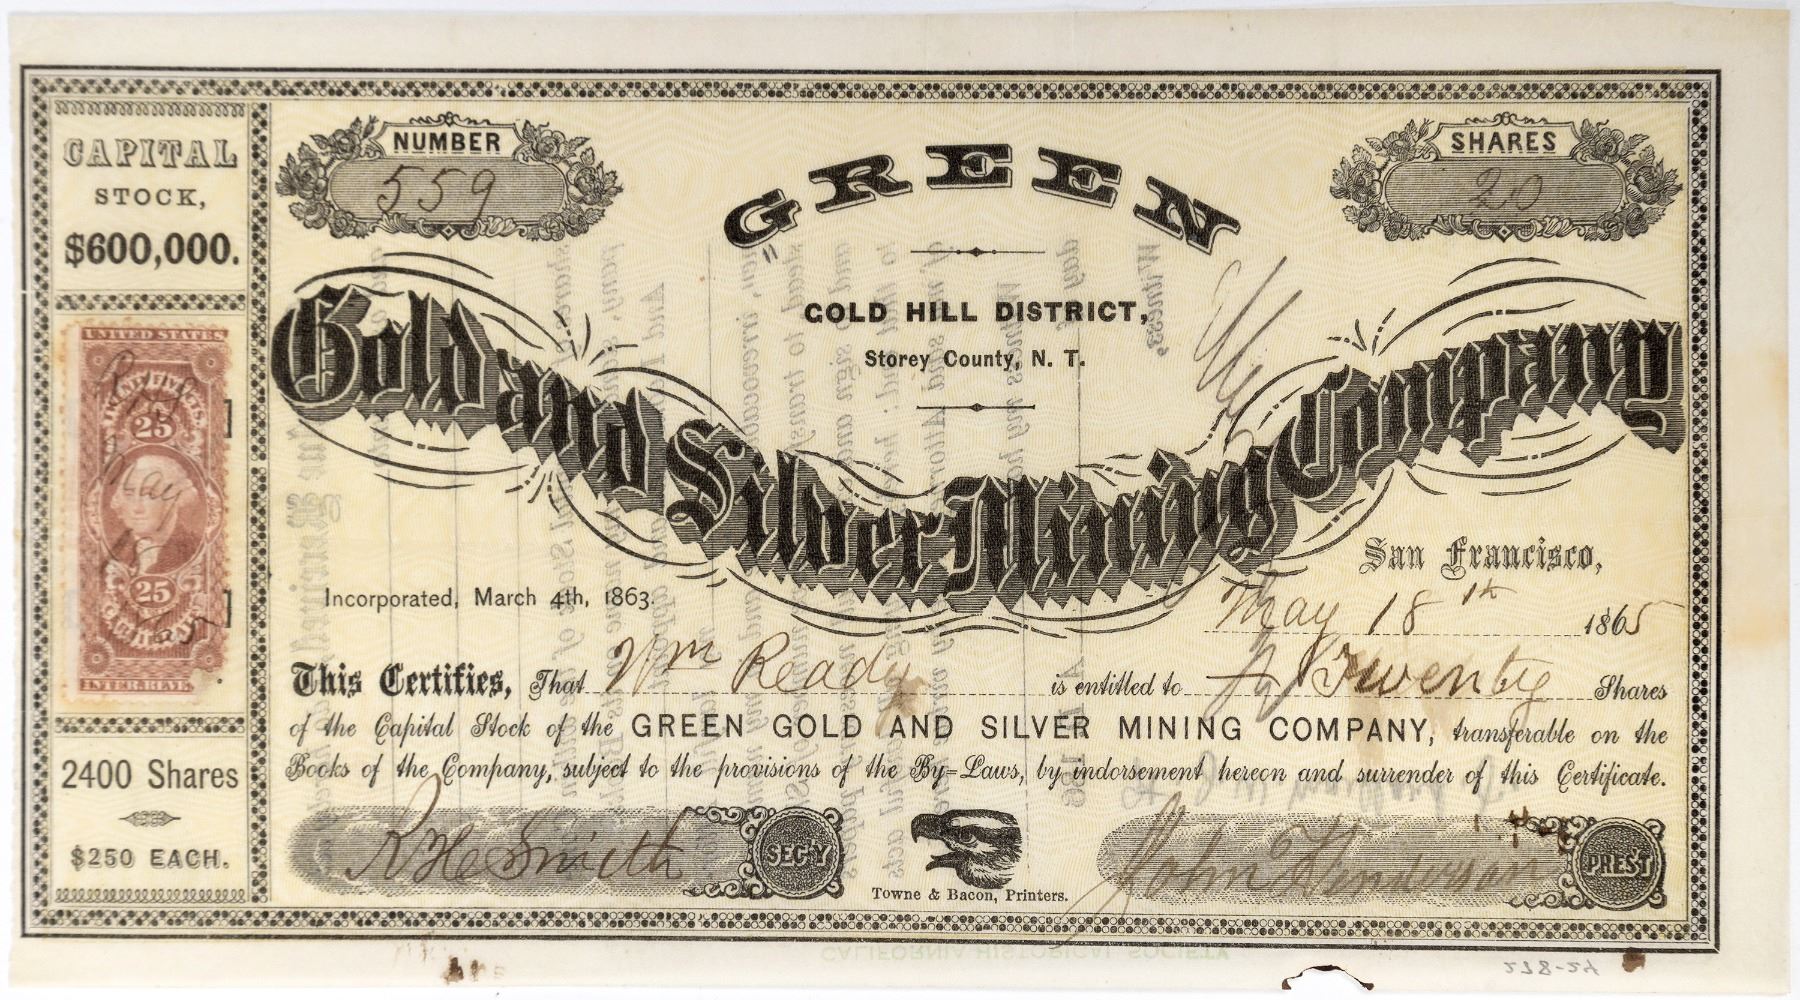 NUMBER
559
SHARES
20
GREEN
GOLD HILL DISTRICT,
Storey County, N. T.
Gold and Silver Mining Company
CAPITAL
STOCK,
$600,000.
UNITED STATES
25
25
INTER. REV.
May
18
2400 Shares
$250 EACH.
San Francisco,
Incorporated, March 4th, 1863.
May 18th 1865
This Certifies, That Wm Ready is entitled to Twenty Shares
of the Capital Stock of the GREEN GOLD AND SILVER MINING COMPANY, transferable on the
Books of the Company, subject to the provisions of the By-Laws, by indorsement hereon and surrender of this Certificate.
R H Smith SEC'Y
John Henderson PRES'T
Towne & Bacon, Printers.
CALIFORNIA HISTORICAL SOCIETY